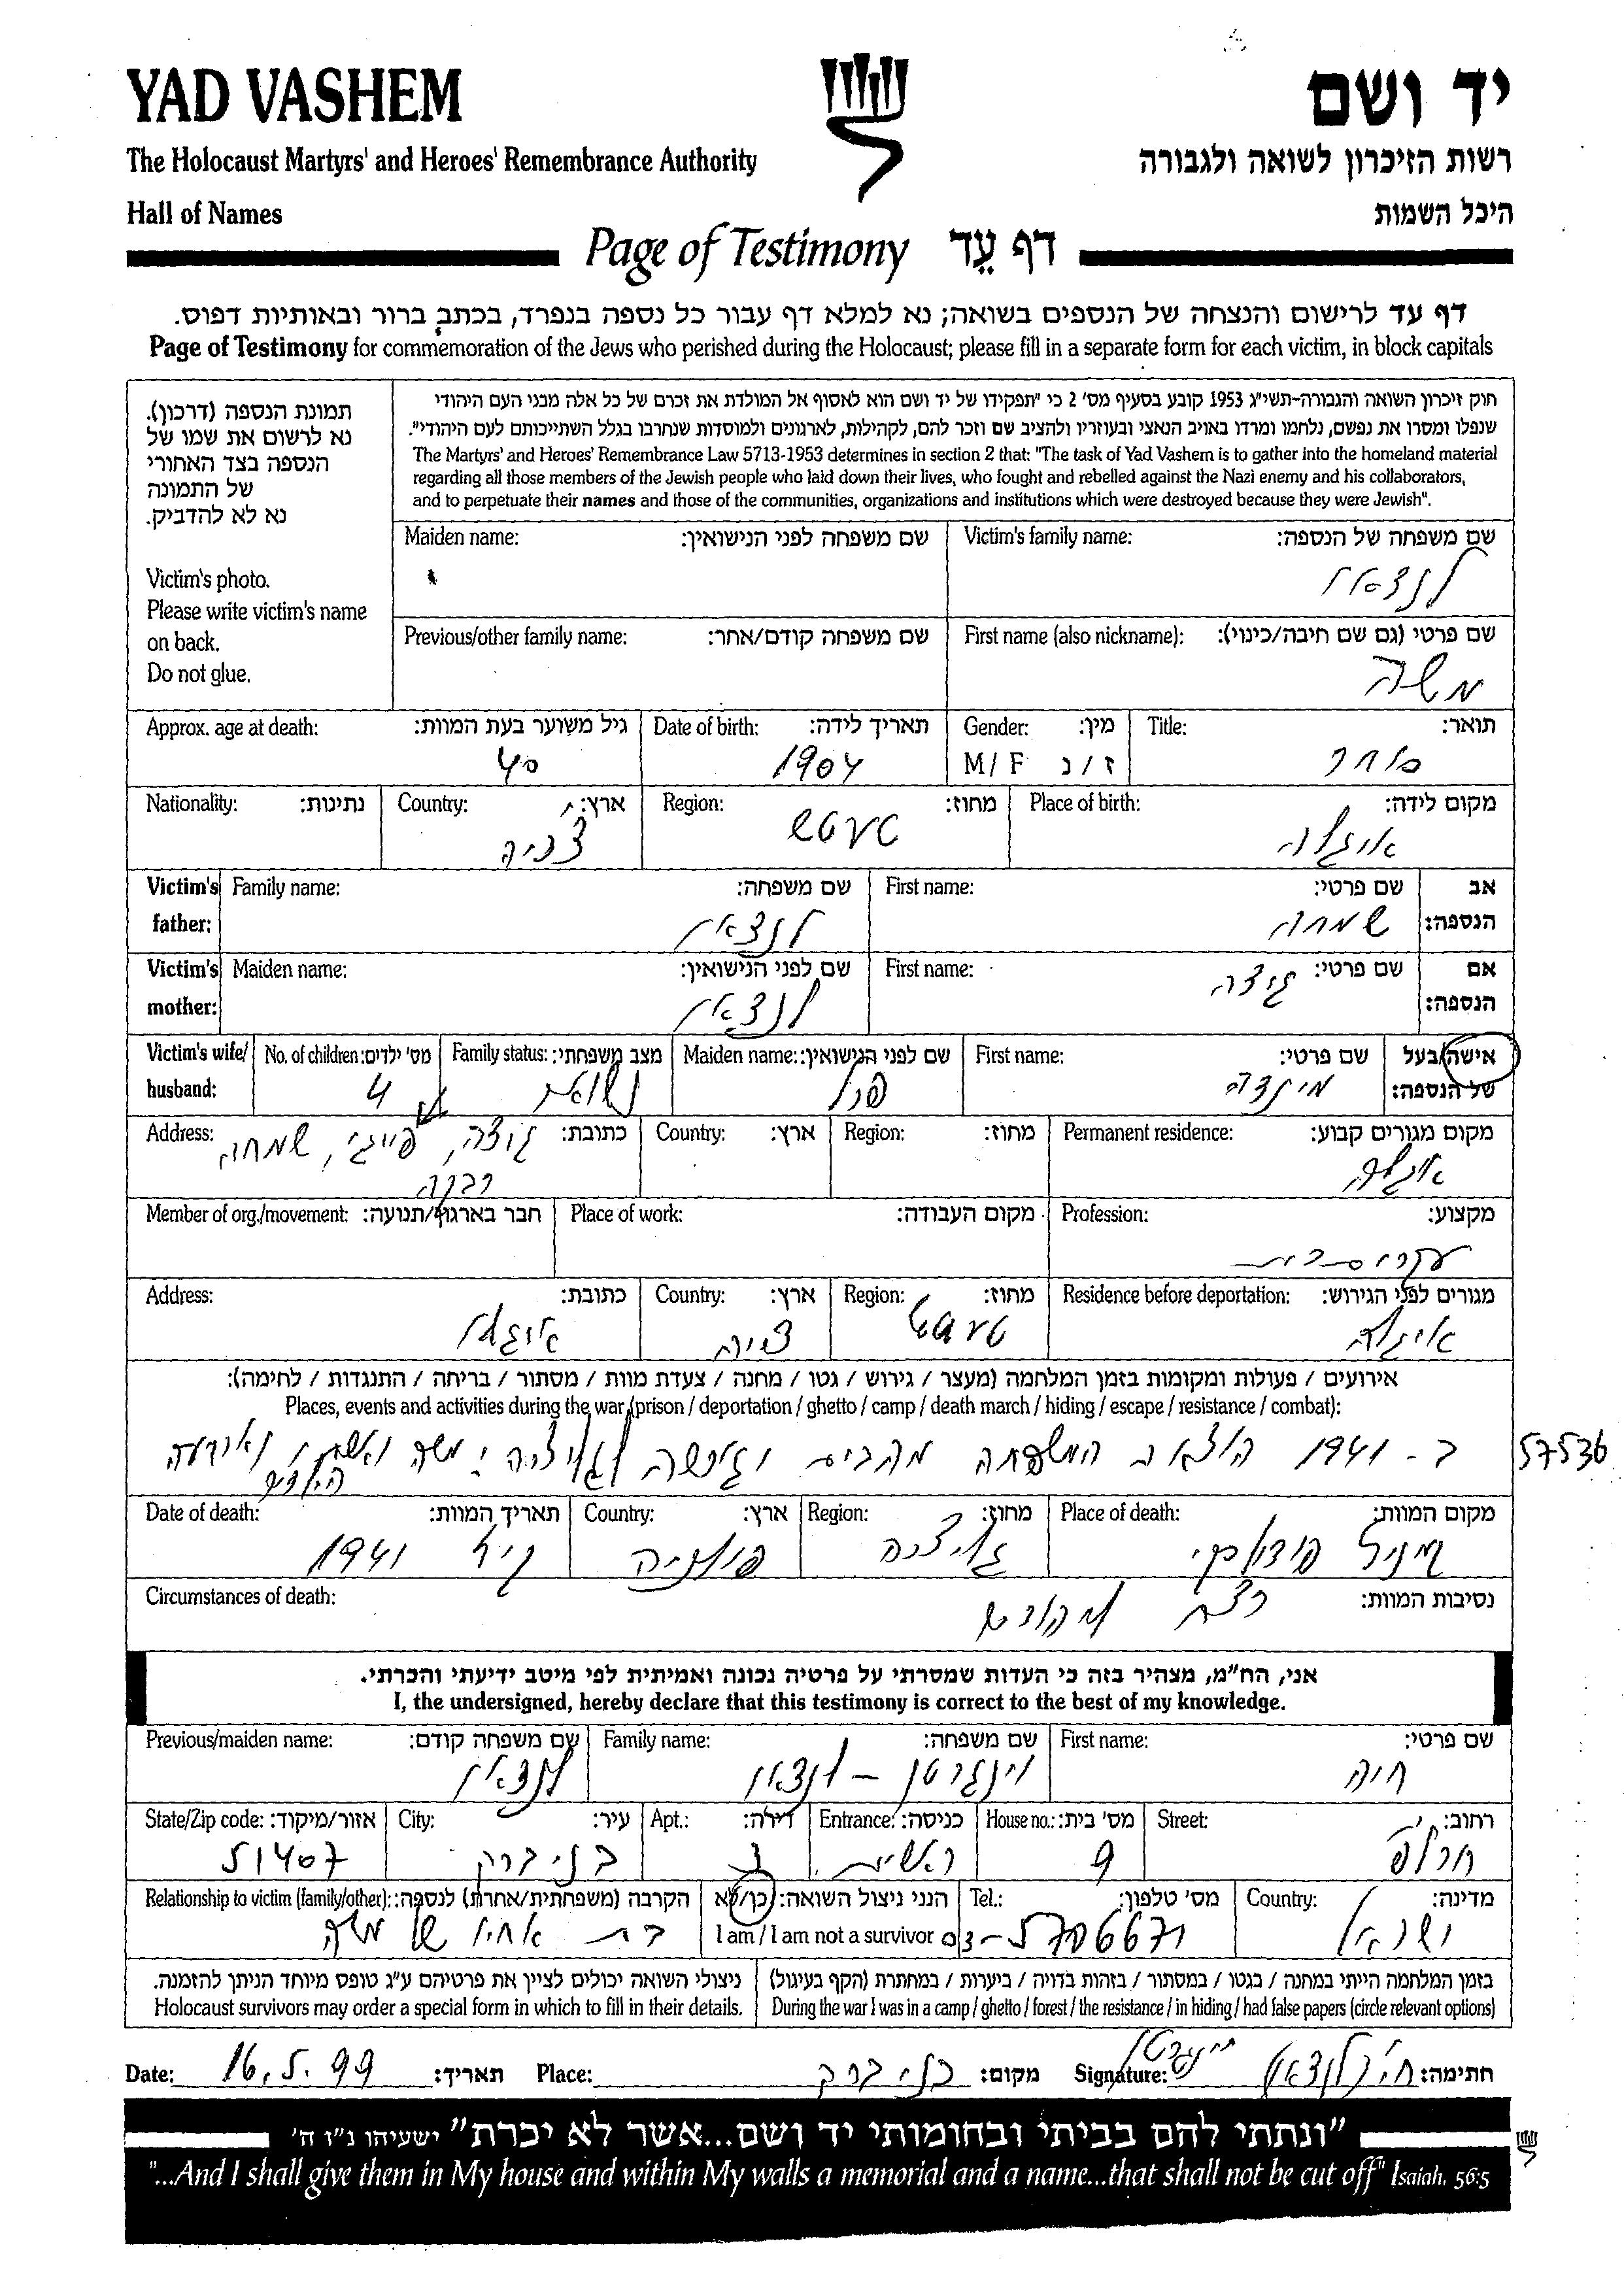 YAD VASHEM
יד ושם
The Holocaust Martyrs' and Heroes' Remembrance Authority
רשות הזיכרון לשואה ולגבורה
Hall of Names
היכל השמות
Page of Testimony דף עֵד
דף עד לרישום והנצחה של הנספים בשואה; נא למלא דף עבור כל נספה בנפרד, בכתב ברור ובאותיות דפוס.
Page of Testimony for commemoration of the Jews who perished during the Holocaust; please fill in a separate form for each victim, in block capitals
תמונת הנספה (דרכון).
נא לרשום את שמו של
הנספה בצד האחורי
של התמונה
נא לא להדביק.
Victim's photo.
Please write victim's name
on back.
Do not glue.
חוק זיכרון השואה והגבורה-תשי"ג 1953 קובע בסעיף מס' 2 כי "תפקידו של יד ושם הוא לאסוף אל המולדת את זכרם של כל אלה מבני העם היהודי
שנפלו ומסרו את נפשם, נלחמו ומרדו באויב הנאצי ובעוזריו ולהציב שם וזכר להם, לקהילות, לארגונים ולמוסדות שנחרבו בגלל השתייכותם לעם היהודי".
The Martyrs' and Heroes' Remembrance Law 5713-1953 determines in section 2 that: "The task of Yad Vashem is to gather into the homeland material
regarding all those members of the Jewish people who laid down their lives, who fought and rebelled against the Nazi enemy and his collaborators,
and to perpetuate their names and those of the communities, organizations and institutions which were destroyed because they were Jewish".
Maiden name: שם משפחה לפני הנישואין: Victim's family name: שם משפחה של הנספה:
לנצאו
Previous/other family name: שם משפחה קודם/אחר: First name (also nickname): שם פרטי (גם שם חיבה/כינוי):
משה
Approx. age at death: גיל משוער בעת המוות: Date of birth: תאריך לידה: Gender: מין: Title: תואר:
40 1904 M / F ז / נ סוחר
Nationality: נתינות: Country: ארץ: Region: מחוז: Place of birth: מקום לידה:
צכיה טעטש איגלה
Victim's father: Family name: שם משפחה: First name: שם פרטי: אב הנספה:
לנצאו שמחה
Victim's mother: Maiden name: שם לפני הנישואין: First name: שם פרטי: אם הנספה:
לנצאו גיצה
Victim's wife/ husband: No. of children: מס' ילדים: Family status: מצב משפחתי: Maiden name: שם לפני הנישואין: First name: שם פרטי: אישה/בעל של הנספה:
4 נשוא מינדה
Address: כתובת: Country: ארץ: Region: מחוז: Permanent residence: מקום מגורים קבוע:
גיצה, פייגי, שמחה, איגלה
רבקה
Member of org./movement: חבר בארגון/תנועה: Place of work: מקום העבודה: Profession: מקצוע:
Address: כתובת: Country: ארץ: Region: מחוז: Residence before deportation: מגורים לפני הגירוש:
טעטש איגלה
אירועים / פעולות ומקומות בזמן המלחמה (מעצר / גירוש / גטו / מחנה / צעדת מוות / מסתור / בריחה / התנגדות / לחימה):
Places, events and activities during the war (prison / deportation / ghetto / camp / death march / hiding / escape / resistance / combat):
ב - 1941 הוצאה המשפחה מהבית וגורשה לגליציה: משה ואשתו וארבעה
הילדים
57536
Date of death: תאריך המוות: Country: ארץ: Region: מחוז: Place of death: מקום המוות:
קיץ 1941 פולניה גליציה פודולסקי
Circumstances of death: נסיבות המוות:
רצח
אני, הח"מ, מצהיר בזה כי העדות שמסרתי על פרטיה נכונה ואמיתית לפי מיטב ידיעתי והכרתי.
I, the undersigned, hereby declare that this testimony is correct to the best of my knowledge.
Previous/maiden name: שם משפחה קודם: Family name: שם משפחה: First name: שם פרטי:
לנצאו וינגרטן - לנצאו חיה
State/Zip code: אזור/מיקוד: City: עיר: Apt.: דירה: Entrance: כניסה: House no.: מס' בית: Street: רחוב:
51407 בני ברק 3 ראשית 9 חרלפ
Relationship to victim (family/other): הקרבה (משפחתית/אחרת) לנספה: הנני ניצול השואה: כן/לא Tel.: מס' טלפון: Country: מדינה:
בת אחיו של משה I am / I am not a survivor 03-5706671 ישראל
ניצולי השואה יכולים לציין את פרטיהם ע"ג טופס מיוחד הניתן להזמנה.
Holocaust survivors may order a special form in which to fill in their details.
בזמן המלחמה הייתי במחנה / בגטו / במסתור / בזהות בדויה / ביערות / במחתרת (הקף בעיגול)
During the war I was in a camp / ghetto / forest / the resistance / in hiding / had false papers (circle relevant options)
Date: 16.5.99 תאריך: Place: בני ברק מקום: Signature: חיה לנצאו וינגרטן חתימה:
"ונתתי להם בביתי ובחומותי יד ושם...אשר לא יכרת" ישעיהו נ"ו ה'
"...And I shall give them in My house and within My walls a memorial and a name...that shall not be cut off" Isaiah, 56:5